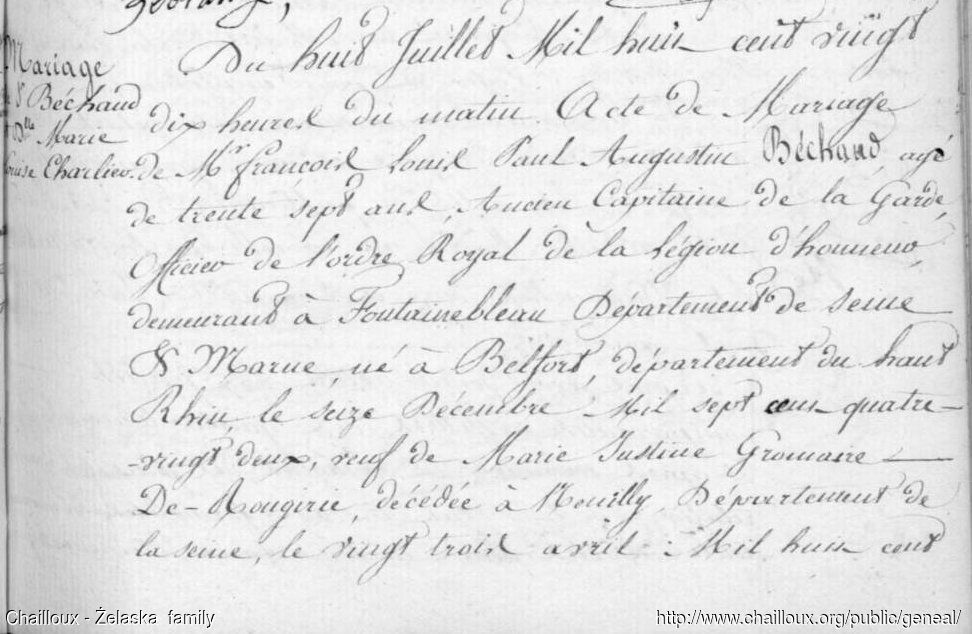 Du huit Juillet Mil huit cent vingt
Mariage
Sr Béchaud
Dlle Marie
Louise Charlier.
dix heures du matin Acte de Mariage
de Mr françois Louis Paul Augustin Béchaud, agé
de trente sept ans, Ancien Capitaine de la Garde,
Officier de l'ordre Royal de la Légion d'honneur,
demeurant à Fontainebleau Département de Seine
& Marne, né à Belfort, département du haut
Rhin, le seize Décembre Mil sept cent quatre-
-vingt deux, veuf de Marie Justine Gromaire
De-Rougirie, décédée à Neuilly, Département de
la seine, le vingt trois avril Mil huit cent
Chailloux - Želaska family
http://www.chailloux.org/public/geneal/